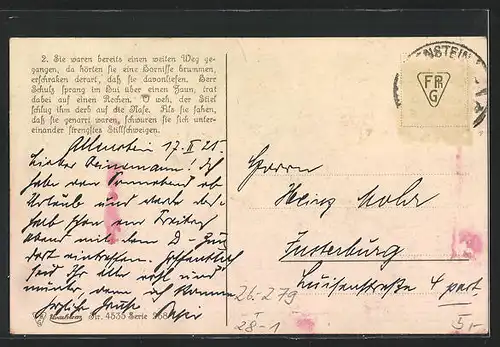 2. Sie waren bereits einen weiten Weg ge-
gangen, da hörten sie eine Hornisse brummen,
erschraken derart, daß sie davonliefen. Herr
Schulz sprang im Hui über einen Zaun, trat
dabei auf einen Rechen. O weh, der Stiel
schlug ihm derb auf die Nase. Als sie sahen,
daß sie genarrt waren, schwuren sie sich unter-
einander strengstes Stillschweigen.
ENSTEIN
FR
G
Allenstein 17. II 25.
Lieber Heinzmann! Ich
habe von Sonnabend ab
Urlaub und werde des-
halb schon am Freitag
Abend mit dem D-Zug
dort eintreffen. Hoffentlich
seid Ihr alle wohl und
munter wenn ich komme
Herzliche Grüße
Herrn
Heinz Mohr
Insterburg
Luisenstraße 4 part.
Nr. 4535 Serie
26.2 79
28-1